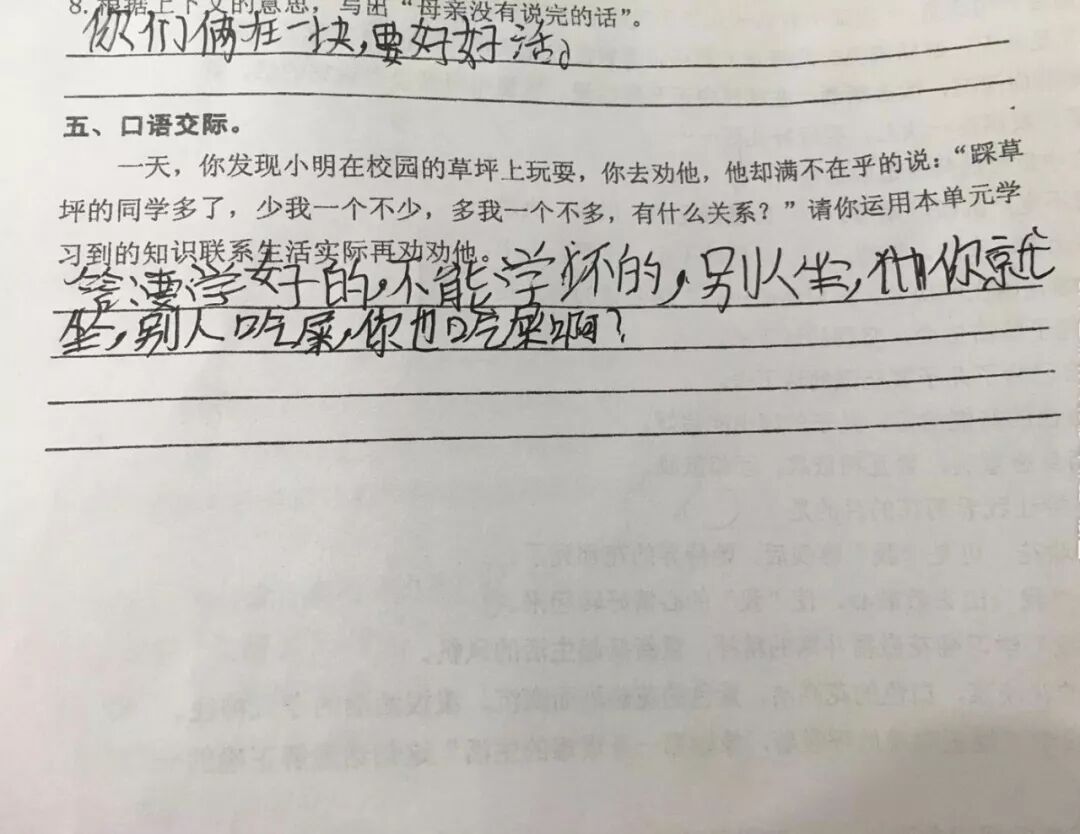 8. 根据上下文的意思，写出“母亲没有说完的话”。
你们俩在一块，要好好活。
五、口语交际。
一天，你发现小明在校园的草坪上玩耍，你去劝他，他却满不在乎的说：“踩草
坪的同学多了，少我一个不少，多我一个不多，有什么关系？”请你运用本单元学
习到的知识联系生活实际再劝劝他。
答：要学好的，不能学坏的，别人坐，你就
坐，别人吃屎，你也吃屎啊？